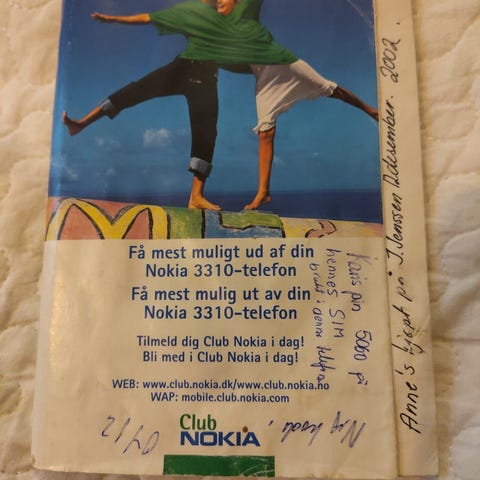 Få mest muligt ud af din
Nokia 3310-telefon
Få mest mulig ut av din
Nokia 3310-telefon
Tilmeld dig Club Nokia i dag!
Bli med i Club Nokia i dag!
WEB: www.club.nokia.dk/www.club.nokia.no
WAP: mobile.club.nokia.com
Club
NOKIA
pin 5060 på
hennes SIM
brukt i denne
Ny kode:
Anne's kjøpt på J. Jenssen desember. 2002.